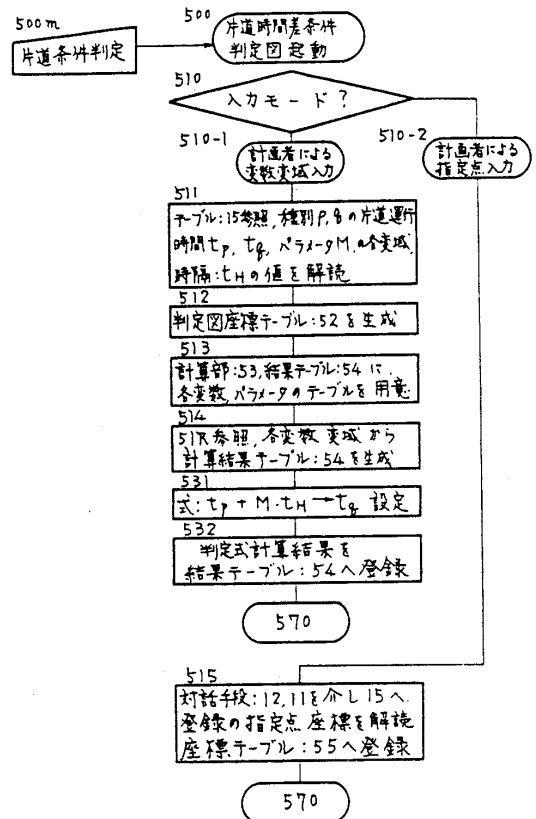 500m
片道条件判定
500
片道時間差条件
判定図起動
510
入力モード?
510-1
計画者による
変数変域入力
510-2
計画者による
指定点入力
511
テーブル:15参照,種別P,qの片道運行
時間tp,tq,パラメータM,の各変域,
時隔:tHの値を解読
512
判定図座標テーブル:52を生成
513
計算部:53,結果テーブル:54に,
各変数,パラメータのテーブルを用意
514
51R参照,各変数変域から
計算結果テーブル:54を生成
531
式:tp+M・tH→tq 設定
532
判定式計算結果を
結果テーブル:54へ登録
570
515
対話手段:12,11を介し15へ
登録の指定点座標を解読
座標テーブル:55へ登録
570